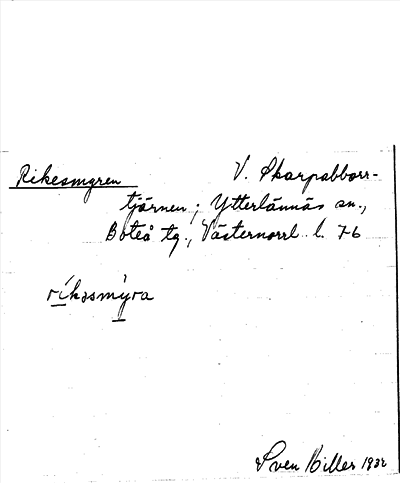 Rikesmyren
V. Skarpabborr-
tjärnen; Ytterlännäs sn.,
Boteå tg., Västernorrl. l. 7-6
ríkəsmỳra
Sven Hiller 1932